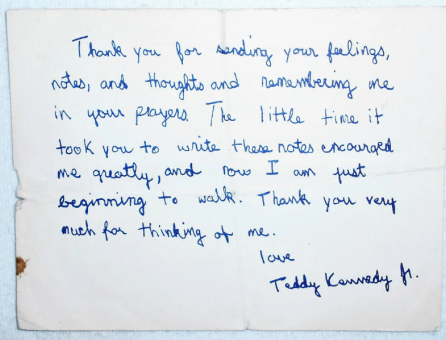 Thank you for sending your feelings,
notes, and thoughts and remembering me
in your prayers. The little time it
took you to write these notes encouraged
me greatly, and now I am just
beginning to walk. Thank you very
much for thinking of me.
love
Teddy Kennedy Jr.